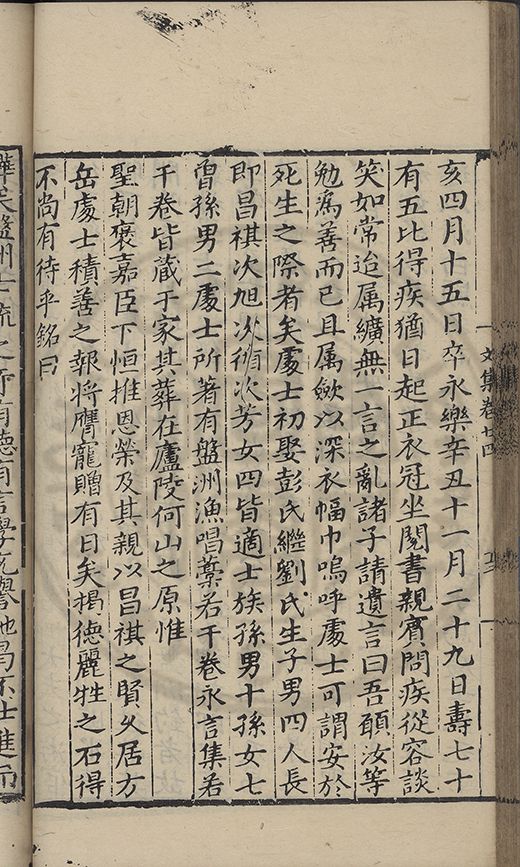 亥四月十五日卒永樂辛丑十一月二十九日壽七十
有五比得疾猶日起正衣冠坐閱書親賓問疾從容談
笑如常迨属纊無一言之亂諸子請遺言曰吾願汝等
勉為善而已且属歛以深衣幅巾嗚呼處士可謂安於
死生之際者矣處士初娶彭氏繼劉氏生子男四人長
即昌祺次旭次次芳女四皆適士族孫男十孫女七
曾孫男二處士所著有盤洲漁唱藁若干卷永言集若
干卷皆藏于家其葬在廬陵何山之原惟
聖朝褒嘉臣下恒推恩榮及其親以昌祺之賢久居方
岳處士積善之報將膺寵贈有日矣揭德麗牲之石得
不尚有待乎銘曰
文集卷十四
盤洲士之所有德有言學